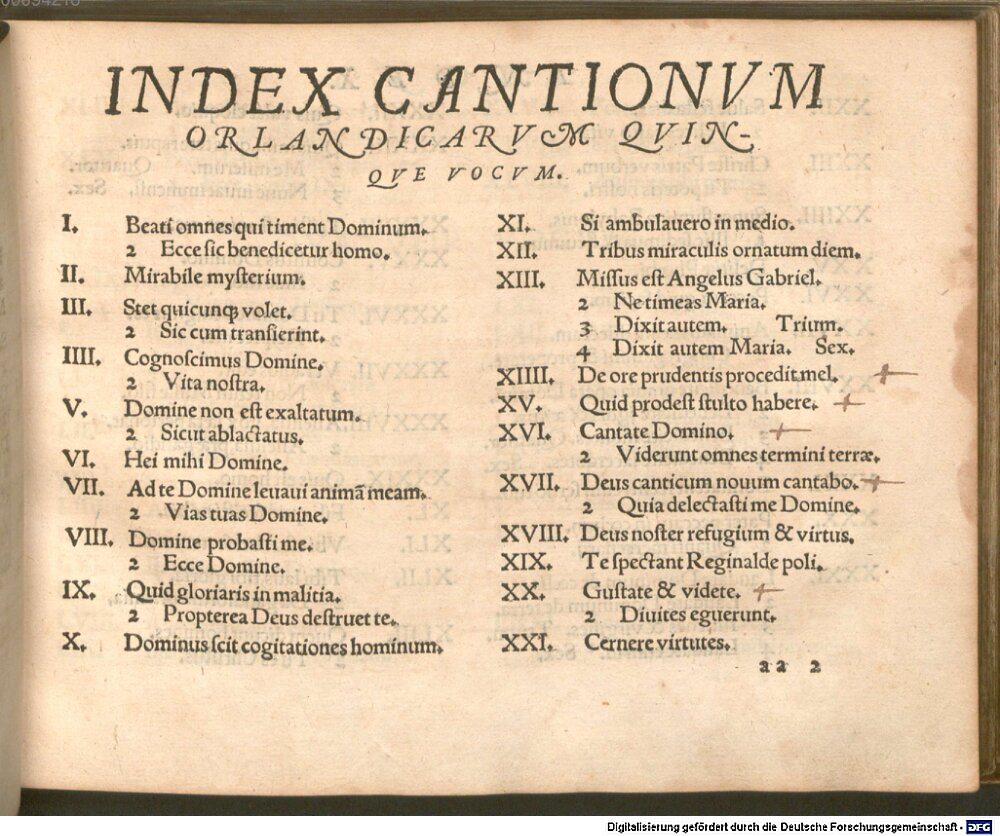 INDEX CANTIONVM
ORLANDICARVM QVIN-
QVE VOCVM.
I. Beati omnes qui timent Dominum.
2 Ecce sic benedicetur homo.
II. Mirabile mysterium.
III. Stet quicunqꝫ volet.
2 Sic cum transierint.
IIII. Cognoscimus Domine.
2 Vita nostra.
V. Domine non est exaltatum.
2 Sicut ablactatus.
VI. Hei mihi Domine.
VII. Ad te Domine leuaui animã meam.
2 Vias tuas Domine.
VIII. Domine probasti me.
2 Ecce Domine.
IX. Quid gloriaris in malitia.
2 Propterea Deus destruet te.
X. Dominus scit cogitationes hominum.
XI. Si ambulauero in medio.
XII. Tribus miraculis ornatum diem.
XIII. Missus est Angelus Gabriel.
2 Ne timeas Maria.
3 Dixit autem. Trium.
4 Dixit autem Maria. Sex.
XIIII. De ore prudentis procedit mel.
XV. Quid prodest stulto habere.
XVI. Cantate Domino.
2 Viderunt omnes termini terræ.
XVII. Deus canticum nouum cantabo.
2 Quia delectasti me Domine.
XVIII. Deus noster refugium & virtus.
XIX. Te spectant Reginalde poli.
XX. Gustate & videte.
2 Diuites eguerunt.
XXI. Cernere virtutes.
aa 2
Digitalisierung gefördert durch die Deutsche Forschungsgemeinschaft - DFG